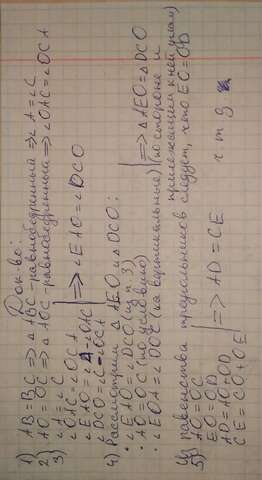 Док-во:
1) AB = BC => △ABC -равнобедренный => ∠A = ∠C
2) AO = OC => △AOC -равнобедренный => ∠OAC = ∠OCA
3) ∠A = ∠C
∠OAC = ∠OCA
∠EAO = ∠A - ∠OAC
∠DCO = ∠C - ∠OCA | => ∠EAO = ∠DCO
4) Рассмотрим △AEO и △DCO:
• ∠EAO = ∠DCO (из 3)
• AO = OC (по условию)
• ∠EOA = ∠DOC (как вертикальные) | => △AEO = △DCO
(по стороне и
прилежащим к ней углам)
Из равенства треугольников следует, что EO = OD
5) AO = OC
EO = OD
AD = AO + OD
CE = CO + OE | => AD = CE
ч.т.д